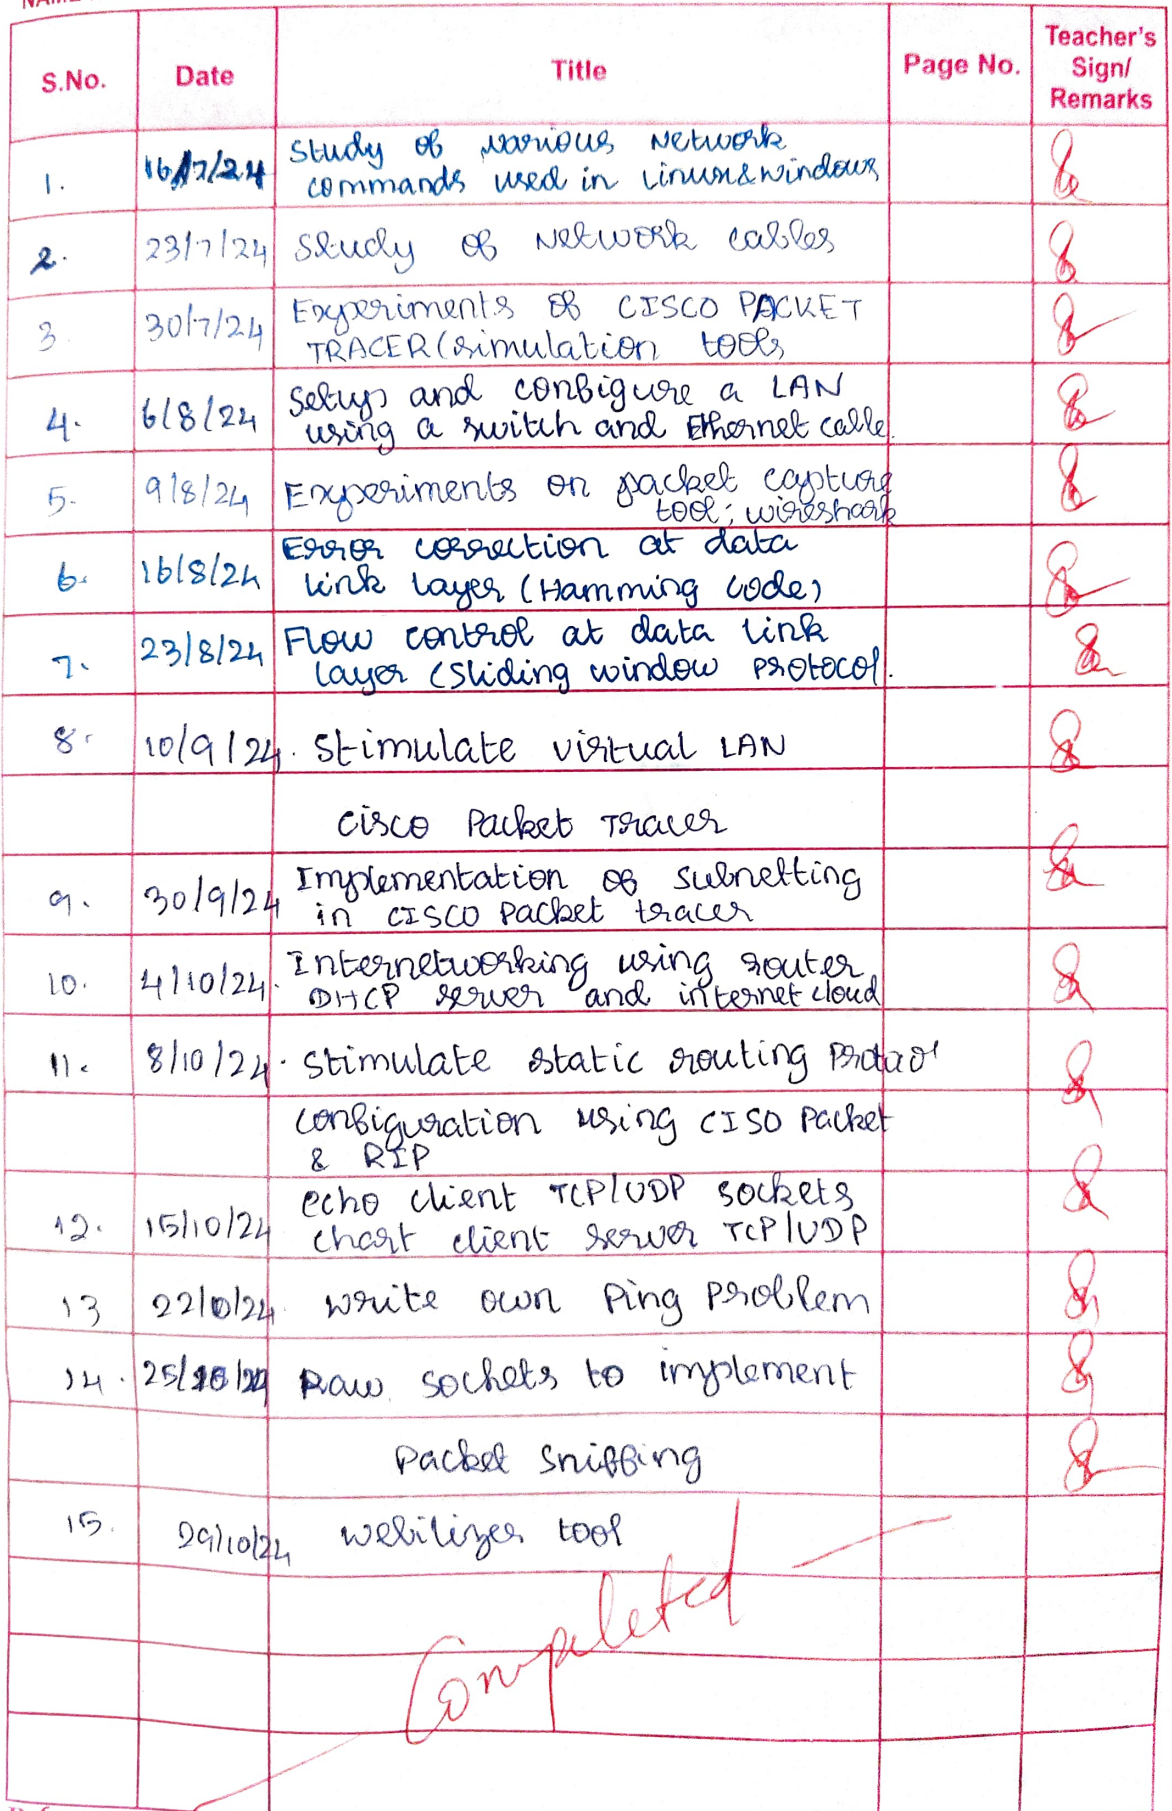 S.No. Date Title Page No. Teacher's Sign/ Remarks
1. 16/7/24 Study of various Network
commands used in Linux & windows
2. 23/7/24 Study of Network cables
3. 30/7/24 Experiments of CISCO PACKET
TRACER (simulation tools
4. 6/8/24 Setup and configure a LAN
using a switch and Ethernet cable.
5. 9/8/24 Experiments on packet capture
tool; wireshark
6. 16/8/24 Error correction at data
link layer (Hamming code)
7. 23/8/24 Flow control at data link
layer (Sliding window protocol.
8. 10/9/24. Stimulate virtual LAN
cisco Packet Tracer
9. 30/9/24 Implementation of subnetting
in CISCO packet tracer
10. 4/10/24. Internetworking using router,
DHCP server and internet cloud
11. 8/10/24. Stimulate static routing
configuration using CISO Packet
& RIP
12. 15/10/24 echo client TCP/UDP sockets
chart client server TCP/UDP
13 22/0/24. write own Ping Problem
14. 25/10/24 Raw sockets to implement
Packet sniffing
15. 29/10/24 webilizer tool
Completed